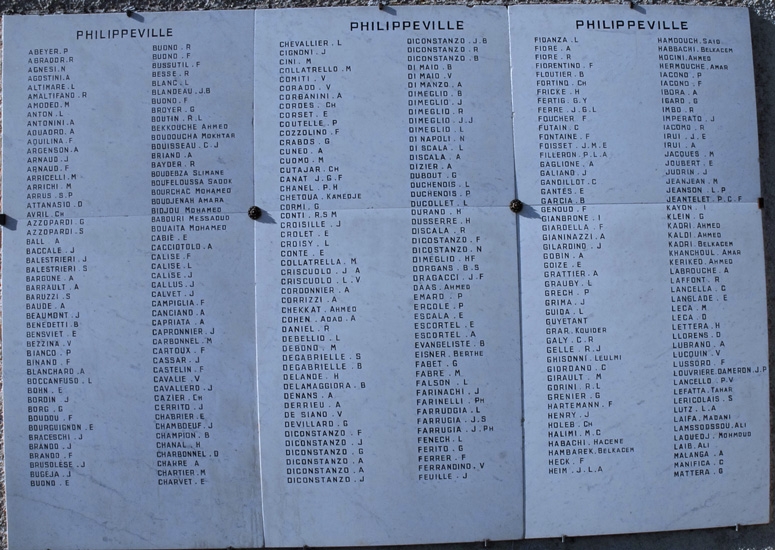 PHILIPPEVILLE
ABEYER.P
ABRADOR.R
AGNESI.N
AGOSTINI.A
ALTIMARE.L
AMALTIFANO.R
AMODEO.M
ANTON.L
ANTONINI.A
AQUADRO.A
AQUILINA.F
ARGENSON.A
ARNAUD.J
ARNAUD.F
ARRICELLI.M
ARRICHI.M
ARRUS.S.P
ATTANASIO.D
AVRIL.CH
AZZOPARDI.G
AZZOPARDI.S
BALL.A
BACCALE.J
BALESTRIERI.J
BALESTRIERI.S
BARGONE.A
BARRAULT.A
BARUZZI.S
BAUDE.A
BEAUMONT.J
BENEDETTI.B
BENSVIET.E
BEZZINA.V
BIANCO.P
BINAND.F
BLANCHARD.A
BOCCANFUSO.L
BOHN.E
BORDIN.J
BORG.G
BOUDOU.F
BOURGUIGNON.E
BRACESCHI.J
BRANDO.J
BRANDO.F
BRUSOLESE.J
BUGEJA.J
BUONO.E
BUONO.R
BUONO.F
BUSSUTIL.F
BESSE.R
BLANC.L
BLANDEAU.J.B
BUONO.F
BROYER.G
BOUTIN.R.L
BEKKOUCHE AHMED
BOUDOUCHA MOKHTAR
BOUISSEAU.C.J
BRIAND.A
BAYDER.R
BOUDEBZA SLIMANE
BOUFELOUSSA SADOK
BOURGHAC MOHAMED
BOUDJENAH AMARA
BIDJOU MOHAMED
BABOURI MESSAOUD
BOUAITA MOHAMED
CABIE.E
CACCIOTOLO.A
CALISE.F
CALISE.L
CALISE.J
CALLUS.J
CALVET.J
CAMPIGLIA.F
CANCIANO.A
CAPRIATA.A
CAPRONNIER.J
CARBONNEL.M
CARTOUX.F
CASSAR.J
CASTELIN.F
CAVALIE.V
CAVALLERO.J
CAZIER.CH
CERRITO.J
CHABRIER.E
CHAMBOEUF.J
CHAMPION.B
CHANAL.H
CHARBONNEL.D
CHAWRE.A
CHARTIER.M
CHARVET.E
PHILIPPEVILLE
CHEVALLIER.L
CIGNONI.J
CINI.M
COLLATRELLO.M
COMITI.V
CORADO.V
CORBANINI.A
CORDES.CH
CORSET.E
COUTELLE.P
COZZOLINO.F
CRABOS.G
CUNEO.A
CUOMO.M
CUTAJAR.CH
CANAT.J.G.F
CHANEL.P.H
CHETOUA.KAMEDJE
CORMI.G
CONTI.R.S.M
CROISILLE.J
CROLET.E
CROISY.L
CONTE.E
COLLATRELLA.M
CRISCUOLO.J.A
CRISCUOLO.L.V
CORDONNIER.A
CORRIZZI.A
CHEKKAT.AHMED
COHEN.ADAD.A
DANIEL.R
DEBELLIO.L
DEBONO.M
DEGABRIELLE.S
DEGABRIELLE.B
DELANDE.H
DELAMAGGIORA.B
DENANS.A
DERRIEU.A
DE SIANO.V
DEVILLARD.G
DICONSTANZO.F
DICONSTANZO.J
DICONSTANZO.G
DICONSTANZO.A
DICONSTANZO.A
DICONSTANZO.J
DICONSTANZO.J.B
DICONSTANZO.R
DICONSTANZO.B
DI MAIO.B
DI MAIO.V
DI MANZO.A
DIMEGLIO.B
DIMEGLIO.J
DIMEGLIO.J.J
DIMEGLIO.L
DI NAPOLI.N
DI SCALA.L
DISCALA.A
DIZIER.A
DUBOUT.G
DUCHENOIS.L
DUCHENOIS.P
DUCOLLET.L
DURAND.H
DUSSERRE.H
DISCALA.R
DICOSTANZO.F
DICOSTANZO.N
DIMEGLIO.HF
DORGANS.B.S
DRAGACCI.J.F
DAAS.AHMED
EMARD.P
ERCOLE.P
ESCALA.E
ESCORTEL.E
ESCORTEL.A
EVANGELISTE.B
EISNER.BERTHE
FABET.G
FABRE.M
FALSON.L
FARINACHI.J
FARINELLI.PH
FARRUDGIA.L
FARRUGIA.J.S
FARRUGIA.J.PH
FENECH.L
FERITO.G
FERRER.F
FERRANDINO.V
FEUILLE.J
PHILIPPEVILLE
FIDANZA.L
FIORE.A
FIORE.R
FIORENTINO.F
FLOUTIER.B
FORTINO.CH
FRICKE.H
FERTIG.G.Y
FERRE.J.G.L
FOUCHER.F
FUTAIN.C
FONTAINE.F
FOISSET.J.M.E
FILLERON.P.L.A
GAGLIONE.A
GALIAND.J
GANDILLOT.C
GANTES.E
GARCIA.B
GENOUD.F
GIANBRONE.I
GIARDELLA.F
GIANINAZZI.A
GILARDINO.J
GOBIN.A
GOIZE.E
GRATTIER.A
GRAUBY.L
GRECH.P
GRIMA.J
GUIDA.L
GUYETANT
GRAR.KOUIDER
GALY.C.R
GELLE.R.J
GHISONNI.LEULMI
GIORDANO.C
GIRAULT.M
GORINI.R.L
GRENIER.G
HARTEMANN.F
HENRY.J
HOLEB.CH
HALIMI.M.C
HABACHI.HACENE
HAMBAREK.BELKACEM
HECK.F
HEIM.J.L.A
HAMDOUCH.SAIS
HABBACHI.BELKACEM
HOCINI.AHMED
HERMOUCHE.AMAR
IACONO.P
IACONO.F
IBORA.A
IGARD.G
IMBO.R
IMPERATO.J
IACOMO.R
IRUI.J.E
IRUI.A
JACQUES.M
JOUBERT.E
JUDRIN.J
JEANJEAN.M
JEANSON.L.P
JEANTELET.P.C.F
KAYON.I
KLEIN.G
KADRI.AHMED
KALDI.AHMED
KADRI.BELKACEM
KHANCHOUL.AMAR
KERIKED.AHMED
LABROUCHE.A
LAFFONT.R
LANCELLA.C
LANGLADE.E
LECA.M
LECA.D
LETTERA.H
LLORENS.D
LUBRANO.A
LUCQUIN.V
LUSSORO.F
LOUVRIERE.DAMERON.J.P
LANCELLO.P.V
LEFATTA.TAHAR
LERICOLAIS.S
LUTZ.L.A
LAIFA.MADANI
LAMSSOUSSOU.ALI
LAOUEDJ.MOHMOUD
LAIB.ALI
MALANGA.A
MANIFICA.C
MATTERA.G